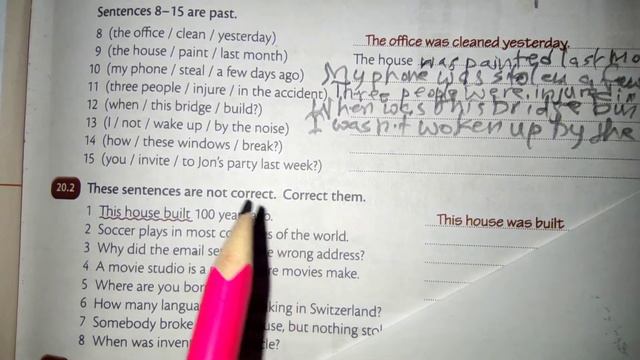 Sentences 8–15 are past.
8 (the office / clean / yesterday) The office was cleaned yesterday.
9 (the house / paint / last month) The house was painted last mo
10 (my phone / steal / a few days ago) My phone was stolen a few
11 (three people / injure / in the accident) Three people were injured in
12 (when / this bridge / build?) When was this bridge buil
13 (I / not / wake up / by the noise) I wasn't woken up by the
14 (how / these windows / break?)
15 (you / invite / to Jon's party last week?)
20.2 These sentences are not correct. Correct them.
1 This house built 100 years ago. This house was built
2 Soccer plays in most of the world.
3 Why did the email wrong address?
4 A movie studio is a movies make.
5 Where are you
6 How many king in Switzerland?
7 Somebody broke use, but nothing stol
8 When was